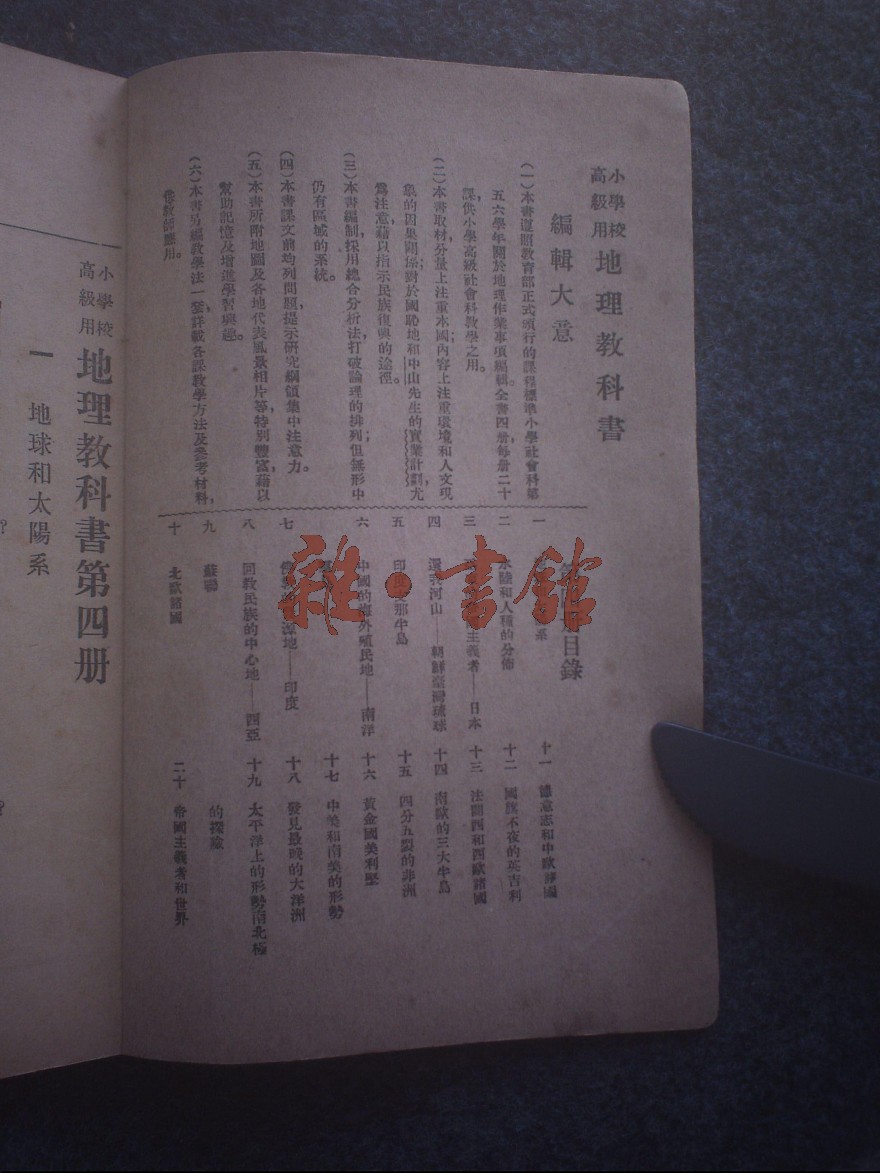 小學校高級用 地理教科書
編輯大意
(一)本書遵照教育部正式頒行的課程標準小學社會科第
五六學年關於地理作業事項編輯全書四册每册二十
課,供小學高級社會科教學之用。
(二)本書取材,分量上注重本國;內容上注重環境和人文現
象的因果關係;對於國恥地和中山先生的實業計劃,尤
爲注意藉以指示民族復興的途徑。
(三)本書編制採用總合分析法,打破論理的排列;但無形中
仍有區域的系統。
(四)本書課文前均列問題,提示研究綱領集中注意力。
(五)本書所附地圖及各地代表風景相片等,特別豐富,藉以
幫助記憶及增進學習興趣。
(六)本書另編教學法一套,詳載各課教學方法及參考材料,
應用。
目錄
一 系
二 水陸和人種的分佈
三 主義者——日本
四 還我河山——朝鮮臺灣琉球
五 印度支那半島
六 中國的海外殖民地——南洋
七 源地——印度
八 回教民族的中心地——西亞
九 蘇聯
十 北歐諸國
十一 德意志和中歐諸國
十二 國旗不夜的英吉利
十三 法蘭西和西歐諸國
十四 南歐的三大半島
十五 四分五裂的非洲
十六 黃金國美利堅
十七 中美和南美的形勢
十八 發見最晚的大洋洲
十九 太平洋上的形勢南北極
的探險
二十 帝國主義者和世界
小學校高級用 地理教科書第四册
一 地球和太陽系
雜·書館